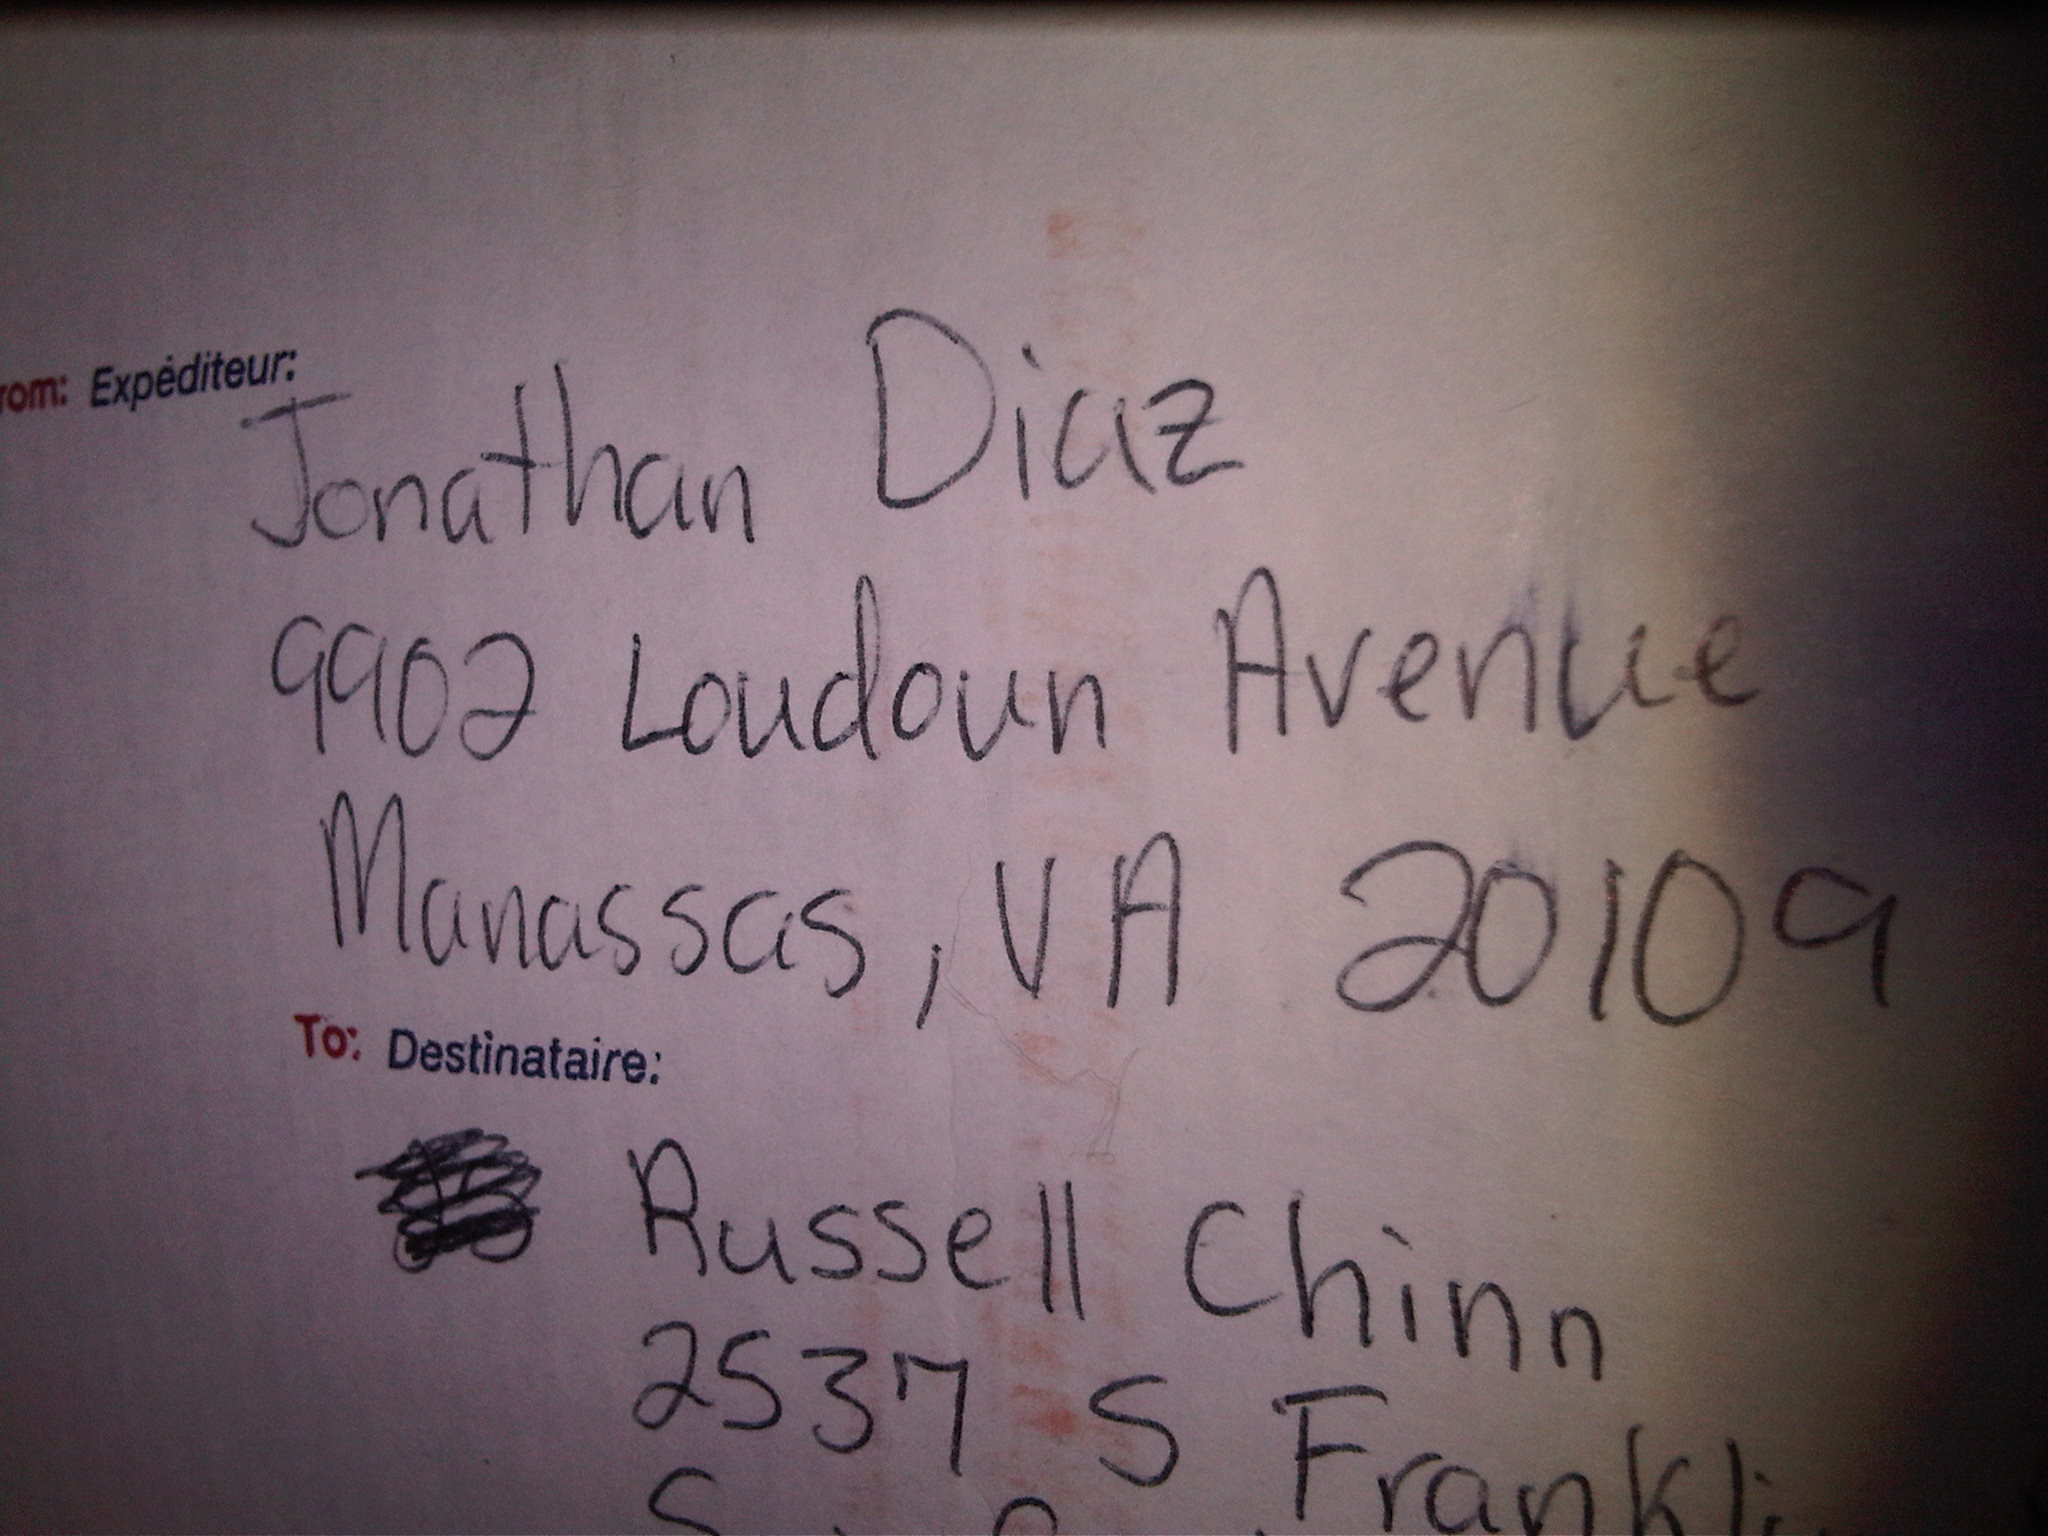 rom: Expéditeur:
Jonathan Diaz
9902 Loudoun Avenue
Manassas, VA 20109
To: Destinataire:
Russell Chinn
2537 S Frankli